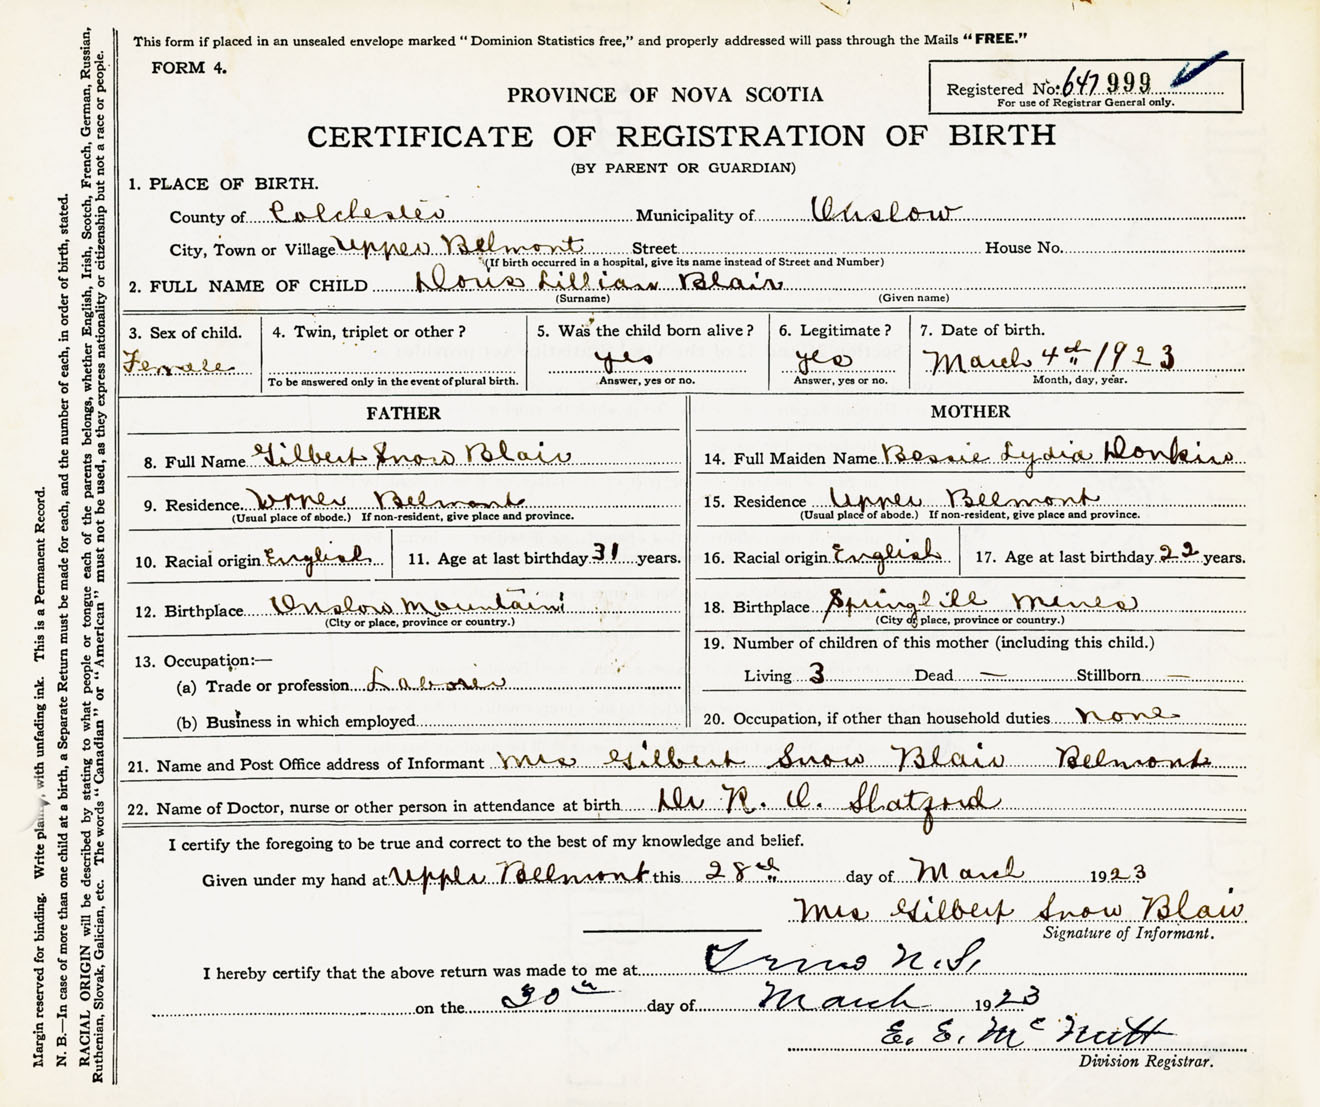 This form if placed in an unsealed envelope marked "Dominion Statistics free," and properly addressed will pass through the Mails "FREE."
FORM 4.
Registered No: 647999
For use of Registrar General only.
PROVINCE OF NOVA SCOTIA
CERTIFICATE OF REGISTRATION OF BIRTH
(BY PARENT OR GUARDIAN)
1. PLACE OF BIRTH.
County of Colchester Municipality of Onslow
City, Town or Village Upper Belmont Street House No.
(If birth occurred in a hospital, give its name instead of Street and Number)
2. FULL NAME OF CHILD Doris Lillian Blair
(Surname) (Given name)
3. Sex of child. 4. Twin, triplet or other? 5. Was the child born alive? 6. Legitimate? 7. Date of birth.
Female yes yes March 4th 1923
To be answered only in the event of plural birth. Answer, yes or no. Answer, yes or no. Month, day, year.
FATHER
8. Full Name Gilbert Snow Blair
9. Residence Upper Belmont
(Usual place of abode.) If non-resident, give place and province.
10. Racial origin English 11. Age at last birthday 31 years.
12. Birthplace Onslow Mountain
(City or place, province or country.)
13. Occupation:—
(a) Trade or profession Laborer
(b) Business in which employed
MOTHER
14. Full Maiden Name Bessie Lydia Donkin
15. Residence Upper Belmont
(Usual place of abode.) If non-resident, give place and province.
16. Racial origin English 17. Age at last birthday 22 years.
18. Birthplace Springhill Mines
(City or place, province or country.)
19. Number of children of this mother (including this child.)
Living 3 Dead — Stillborn —
20. Occupation, if other than household duties none
21. Name and Post Office address of Informant Mrs Gilbert Snow Blair Belmont
22. Name of Doctor, nurse or other person in attendance at birth Dr R. O. Shatford
I certify the foregoing to be true and correct to the best of my knowledge and belief.
Given under my hand at Upper Belmont this 28th day of March 1923
Mrs Gilbert Snow Blair
Signature of Informant.
I hereby certify that the above return was made to me at Truro N.S.
on the 30th day of March 1923
E. E. McNutt
Division Registrar.
Margin reserved for binding. Write plainly, with unfading ink. This is a Permanent Record.
N. B.—In case of more than one child at a birth, a Separate Return must be made for each, and the number of each, in order of birth, stated.
RACIAL ORIGIN will be described by stating to what people or tongue each of the parents belongs, whether English, Irish, Scotch, French, German, Russian,
Ruthenian, Slovak, Galician, etc. The words "Canadian" or "American" must not be used, as they express nationality or citizenship but not a race or people.